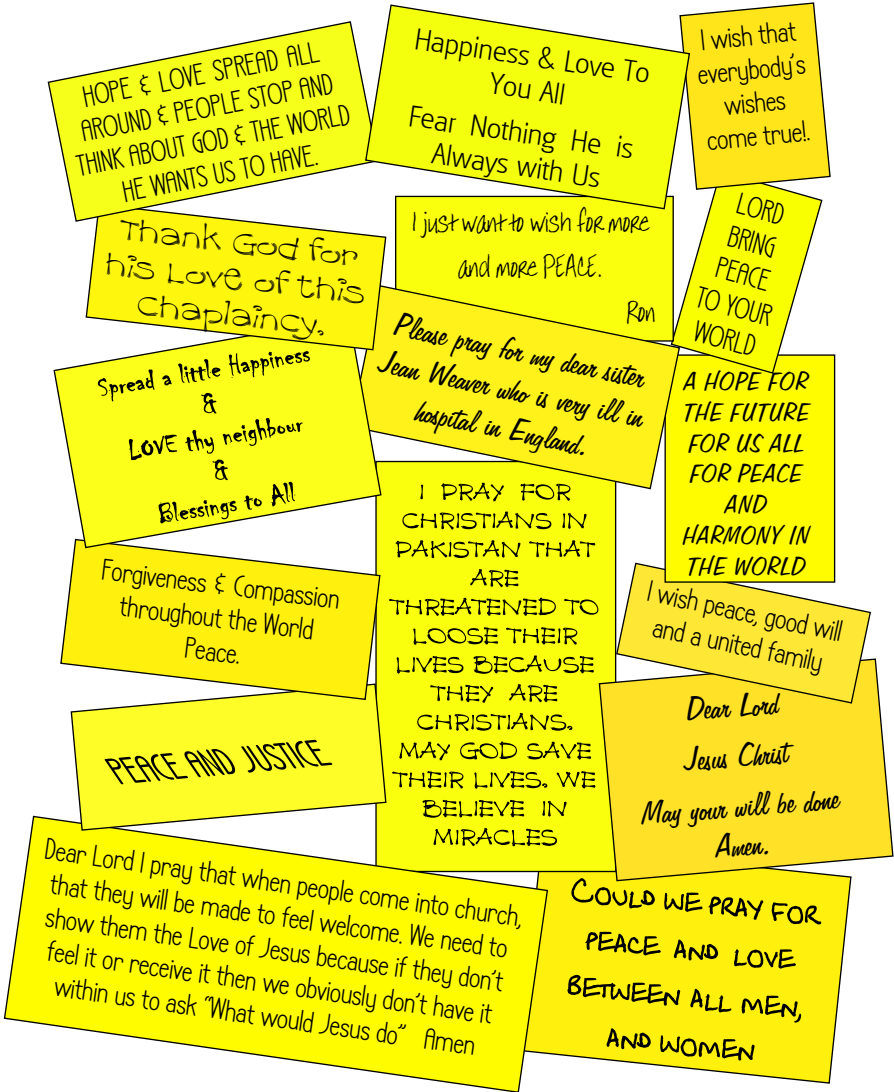 HOPE & LOVE SPREAD ALL
AROUND & PEOPLE STOP AND
THINK ABOUT GOD & THE WORLD
HE WANTS US TO HAVE.
Happiness & Love To
You All
Fear Nothing He is
Always with Us
I wish that
everybody's
wishes
come true!.
Thank God for
his Love of this
Chaplaincy.
I just want to wish for more
and more PEACE.
Ron
LORD
BRING
PEACE
TO YOUR
WORLD
Spread a little Happiness
&
LOVE thy neighbour
&
Blessings to All
Please pray for my dear sister
Jean Weaver who is very ill in
hospital in England.
A HOPE FOR
THE FUTURE
FOR US ALL
FOR PEACE
AND
HARMONY IN
THE WORLD
I PRAY FOR
CHRISTIANS IN
PAKISTAN THAT
ARE
THREATENED TO
LOOSE THEIR
LIVES BECAUSE
THEY ARE
CHRISTIANS.
MAY GOD SAVE
THEIR LIVES. WE
BELIEVE IN
MIRACLES
Forgiveness & Compassion
throughout the World
Peace.
I wish peace, good will
and a united family
PEACE AND JUSTICE
Dear Lord
Jesus Christ
May your will be done
Amen.
Dear Lord I pray that when people come into church,
that they will be made to feel welcome. We need to
show them the Love of Jesus because if they don't
feel it or receive it then we obviously don't have it
within us to ask "What would Jesus do" Amen
COULD WE PRAY FOR
PEACE AND LOVE
BETWEEN ALL MEN,
AND WOMEN